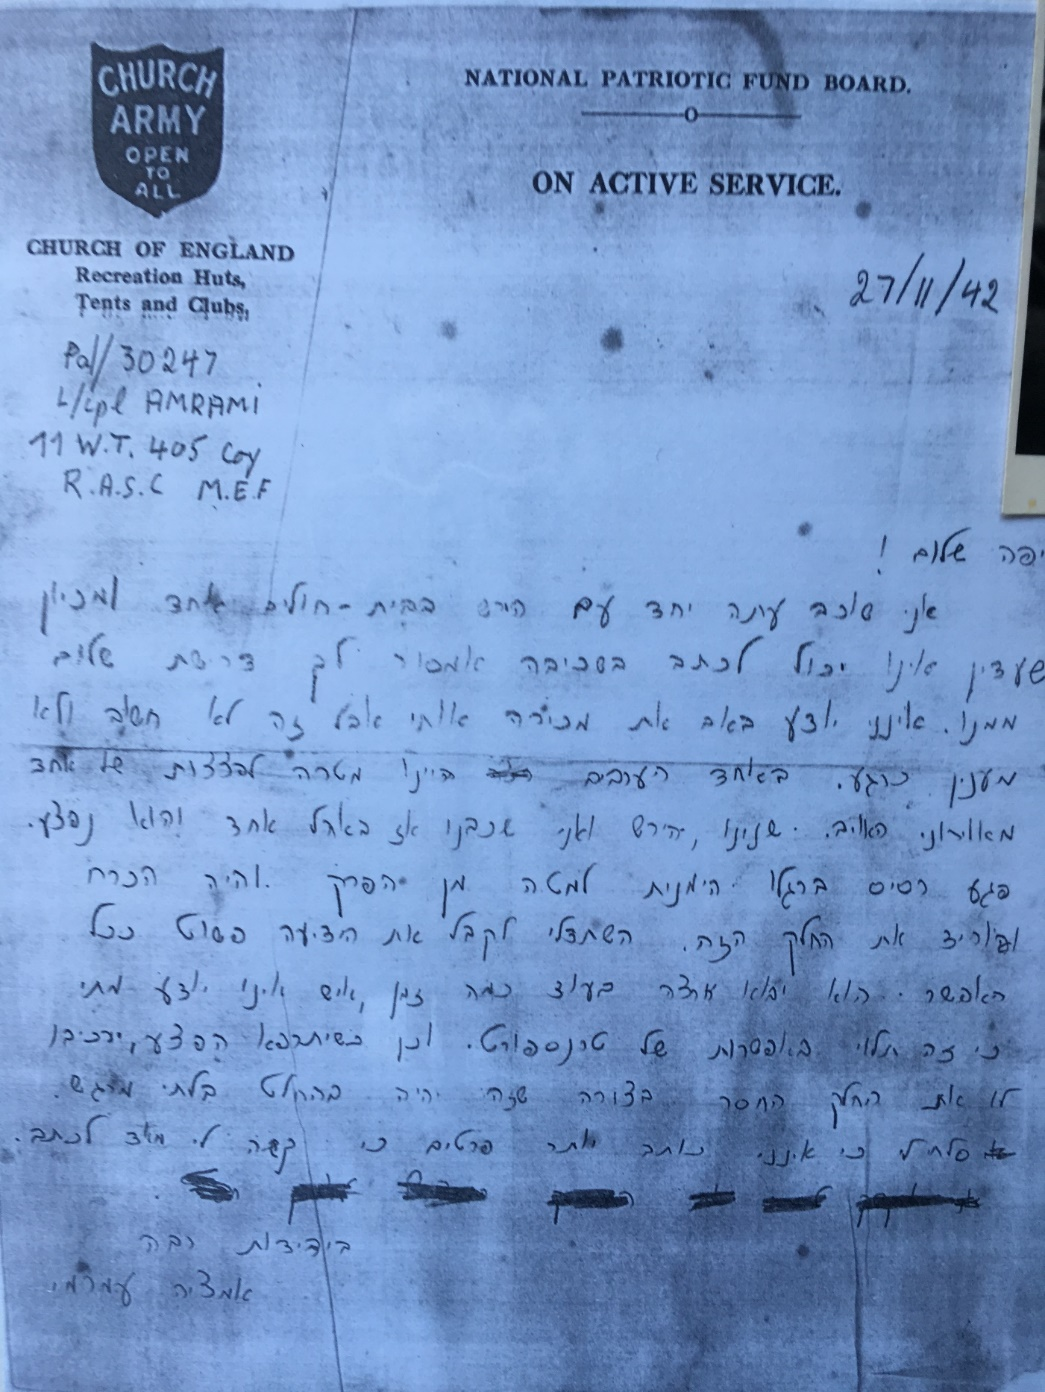 CHURCH
ARMY
OPEN
TO
ALL
NATIONAL PATRIOTIC FUND BOARD.
ON ACTIVE SERVICE.
CHURCH OF ENGLAND
Recreation Huts,
Tents and Clubs,
27/11/42
Pal/30247
L/cpl AMRAMI
11 W.T. 405 Coy
R.A.S.C M.E.F
יפה שלום !
אני שוכב עתה יחד עם הירש בבית-חולים אחד ומכיון
שעדין אינו יכול לכתב בשכיבה אמסור לך דרישת שלום
ממנו. אינני יודע באם את מכירה אותי אבל זה לא חשוב ולא
מענין כרגע. באחד הערבים היינו מטרה להפצצות של אחד
מאוירוני האויב. שנינו, הירש ואני שכבנו אז באהל אחד והוא נפצע.
פגע רסיס ברגלו הימנית למטה מן הפרק והיה הכרח
להוריד את החלק הזה. השתדלי לקבל את הידיעה פשוט ככל
האפשר. הוא יבוא ארצה בעוד כמה זמן, איש אינו יודע מתי
כי זה תלוי באפשרות של טרנספורט. וכן כשיתרפא הפצע, ירכיבו
לו את החלק החסר בצורה שזה יהיה בהחלט בלתי מורגש.
סלחי לי כי אינני כותב יותר פרטים כי קשה לי מאד לכתב.
בידידות רבה
אמציה עמרמי